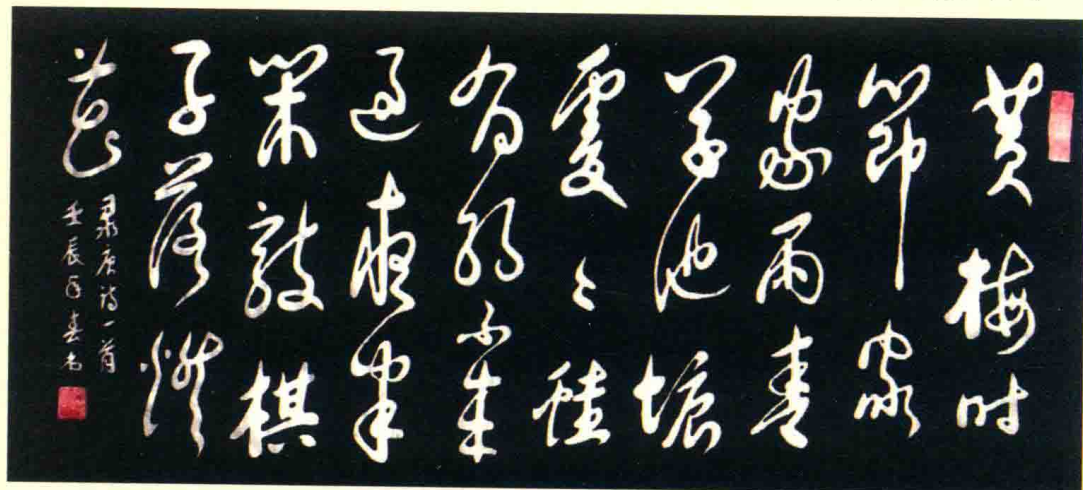 黄梅时
節家
家雨青
草池塘
處々蛙
有約不来
过夜半
闲敲棋
子落燈
花
录唐诗一首
壬辰年春书